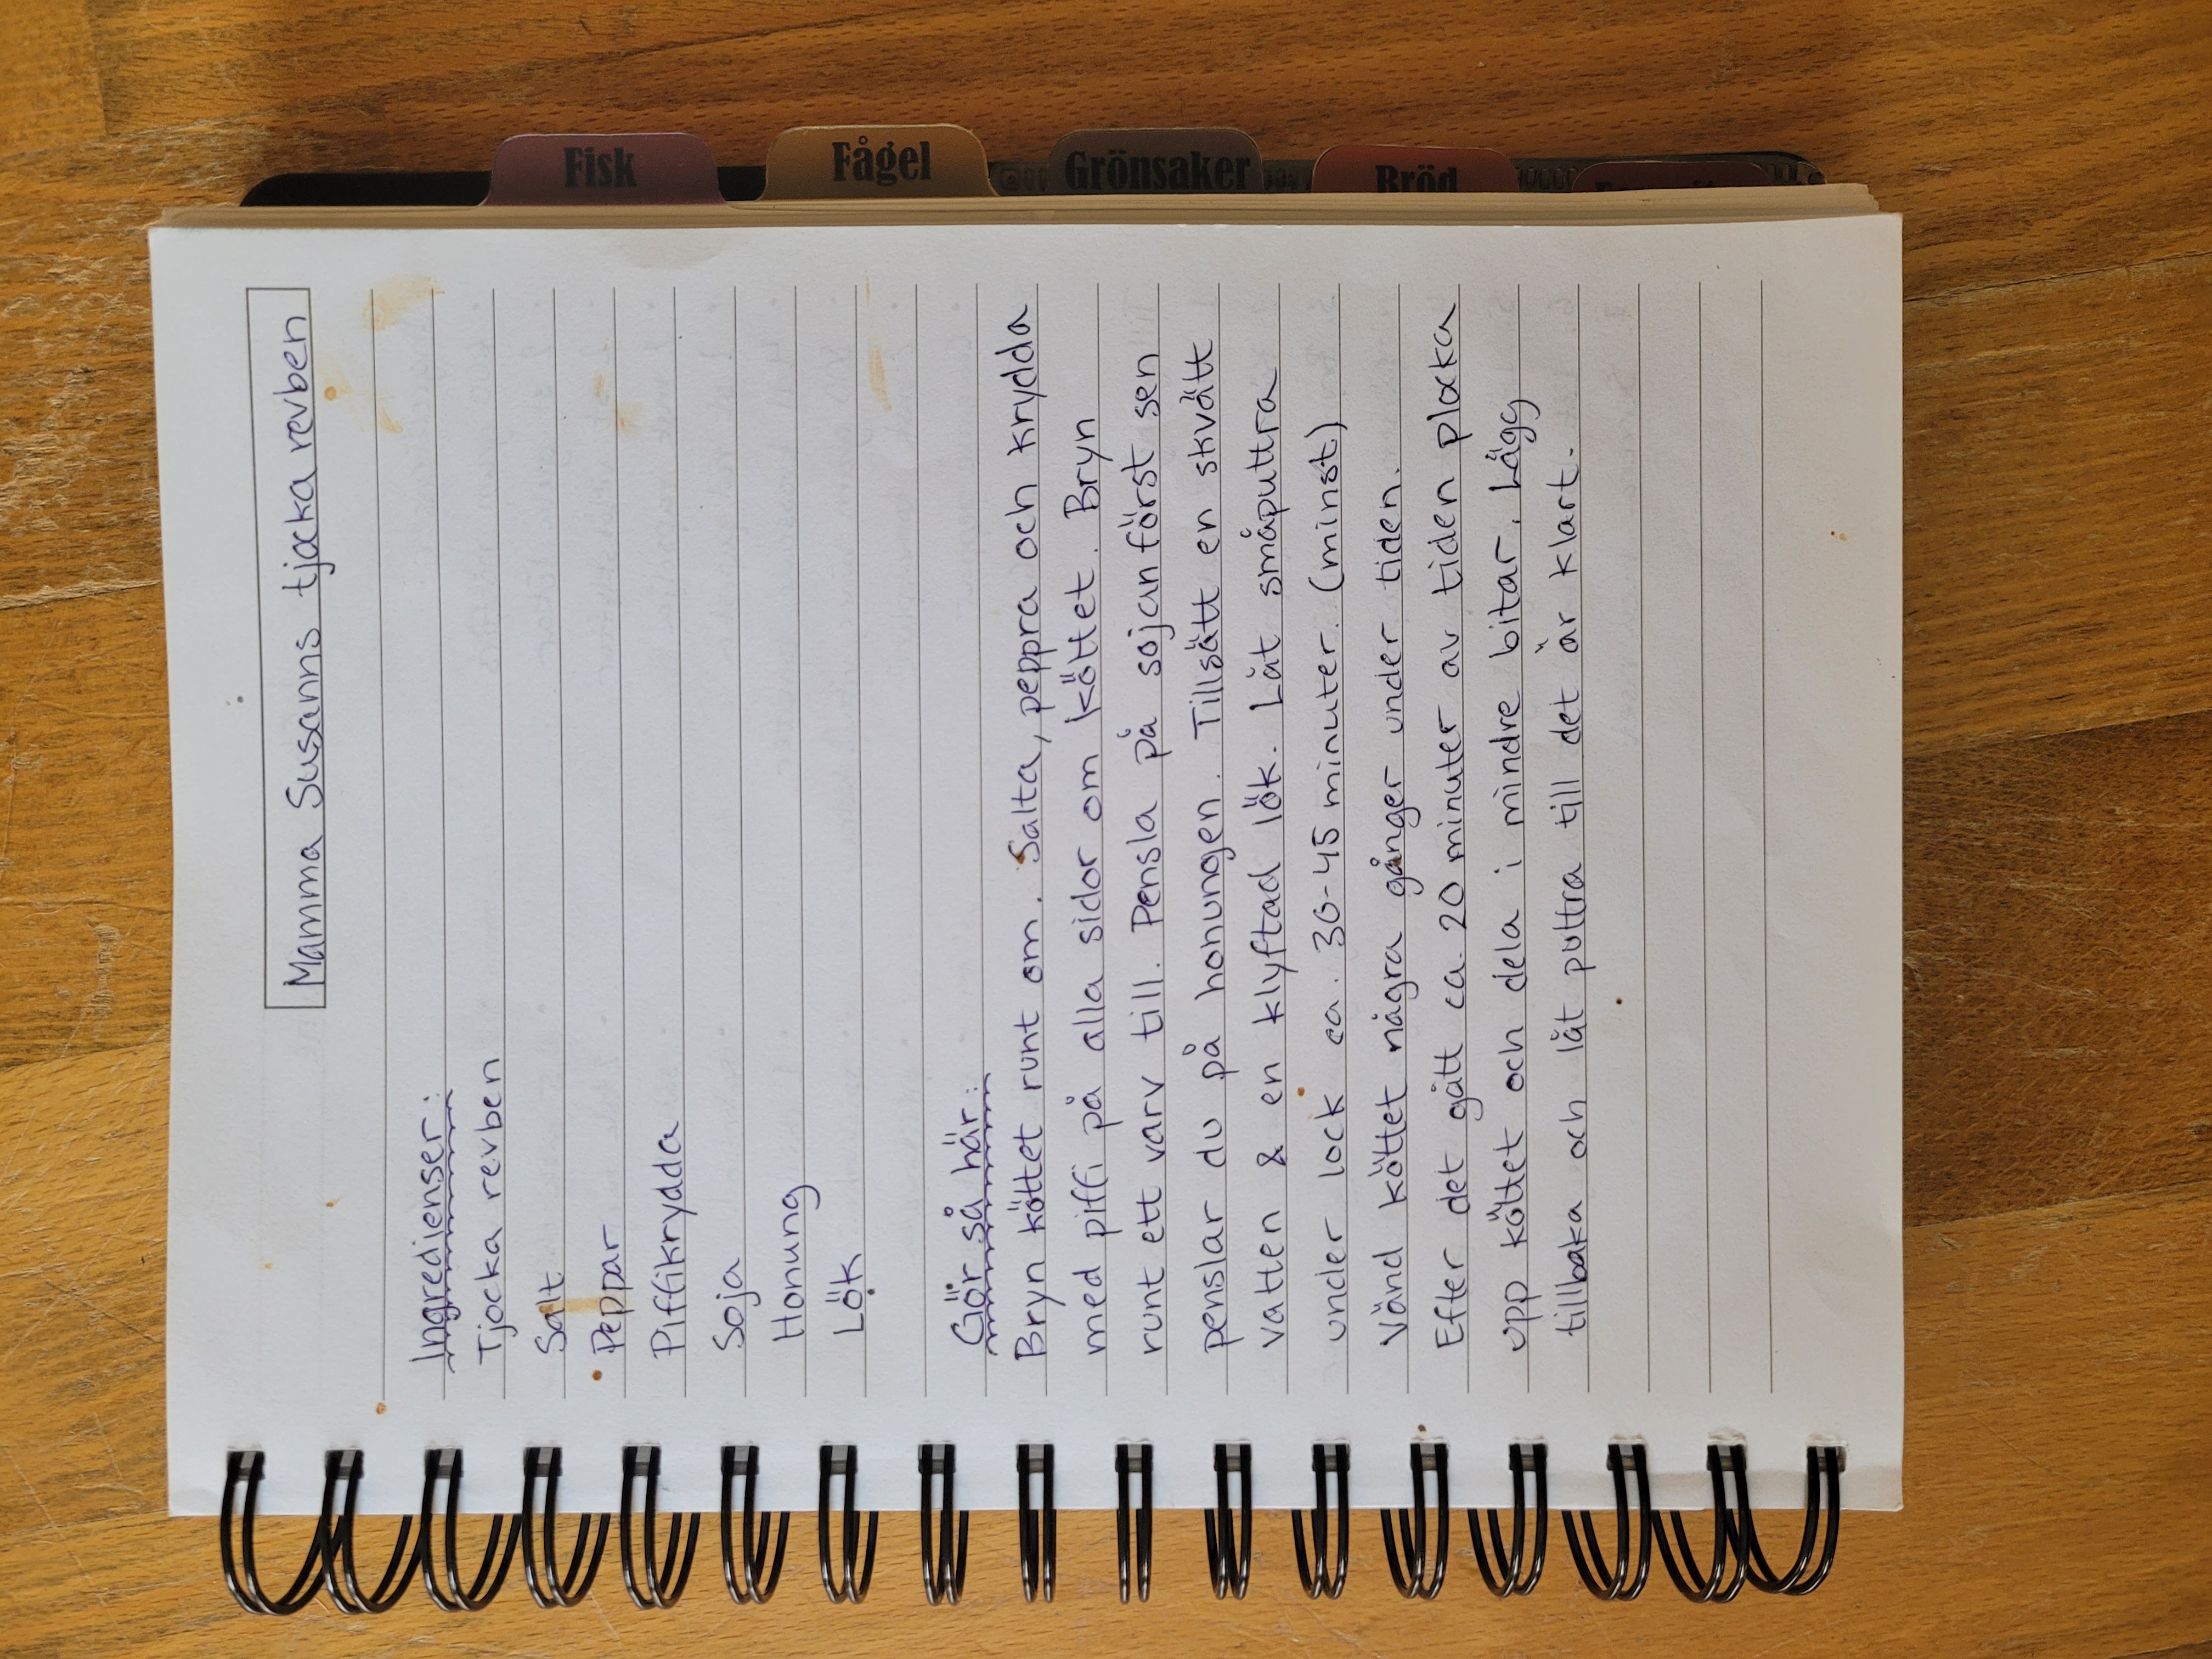 Mamma Susanns tjocka revben
Ingredienser:
Tjocka revben
Salt
Peppar
Piffikrydda
Soja
Honung
Lök
Gör så här:
Bryn köttet runt om. Salta, peppra och krydda
med piffi på alla sidor om köttet. Bryn
runt ett varv till. Pensla på sojan först sen
penslar du på honungen. Tillsätt en skvätt
vatten & en klyftad lök. Låt småputtra
under lock ca. 30-45 minuter. (minst)
Vänd köttet några gånger under tiden.
Efter det gått ca 20 minuter av tiden plocka
upp köttet och dela i mindre bitar. Lägg
tillbaka och låt puttra till det är klart.
Fisk
Fågel
Grönsaker
Bröd